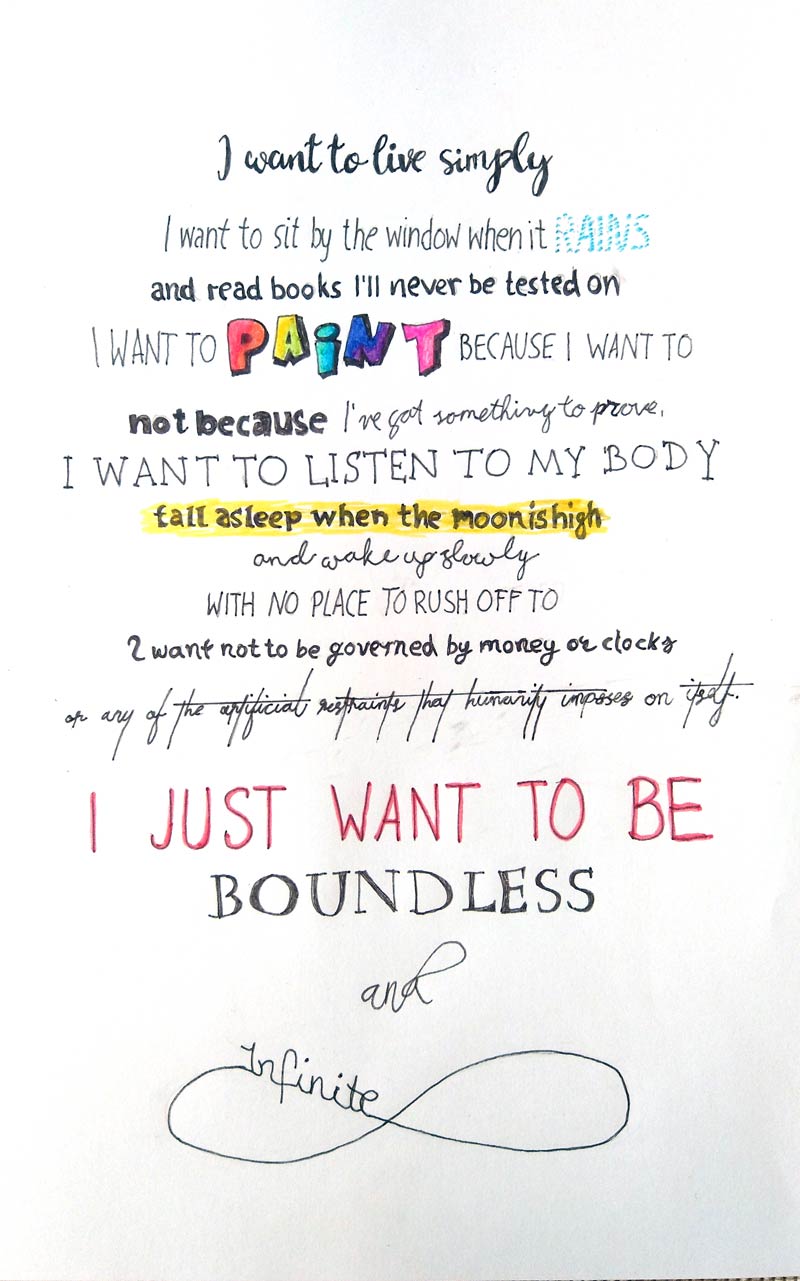 I want to live simply
I want to sit by the window when it RAINS
and read books I'll never be tested on
I WANT TO PAINT BECAUSE I WANT TO
not because I've got something to prove.
I WANT TO LISTEN TO MY BODY
fall asleep when the moon is high
and wake up slowly
WITH NO PLACE TO RUSH OFF TO
I want not to be governed by money or clocks
or any of the artificial restraints that humanity imposes on itself.
I JUST WANT TO BE
BOUNDLESS
and
Infinite